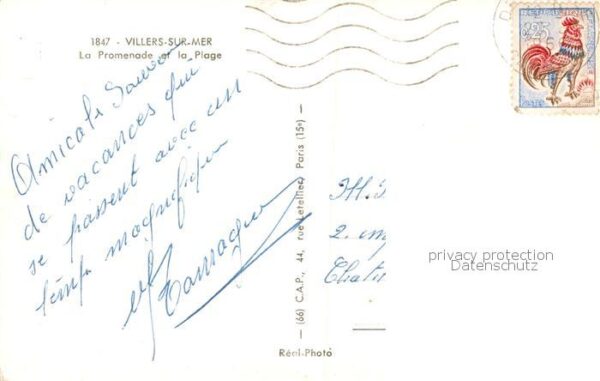 1847 - VILLERS-SUR-MER
La Promenade et la Plage
Amical Souvenir
de vacances qui
se passent avec un
temps magnifique
(66) C.A.P., 44, rue Letellier, Paris (15e)
Réal-Photo
0,25
M.
2.
Chatin
privacy protection
Datenschutz